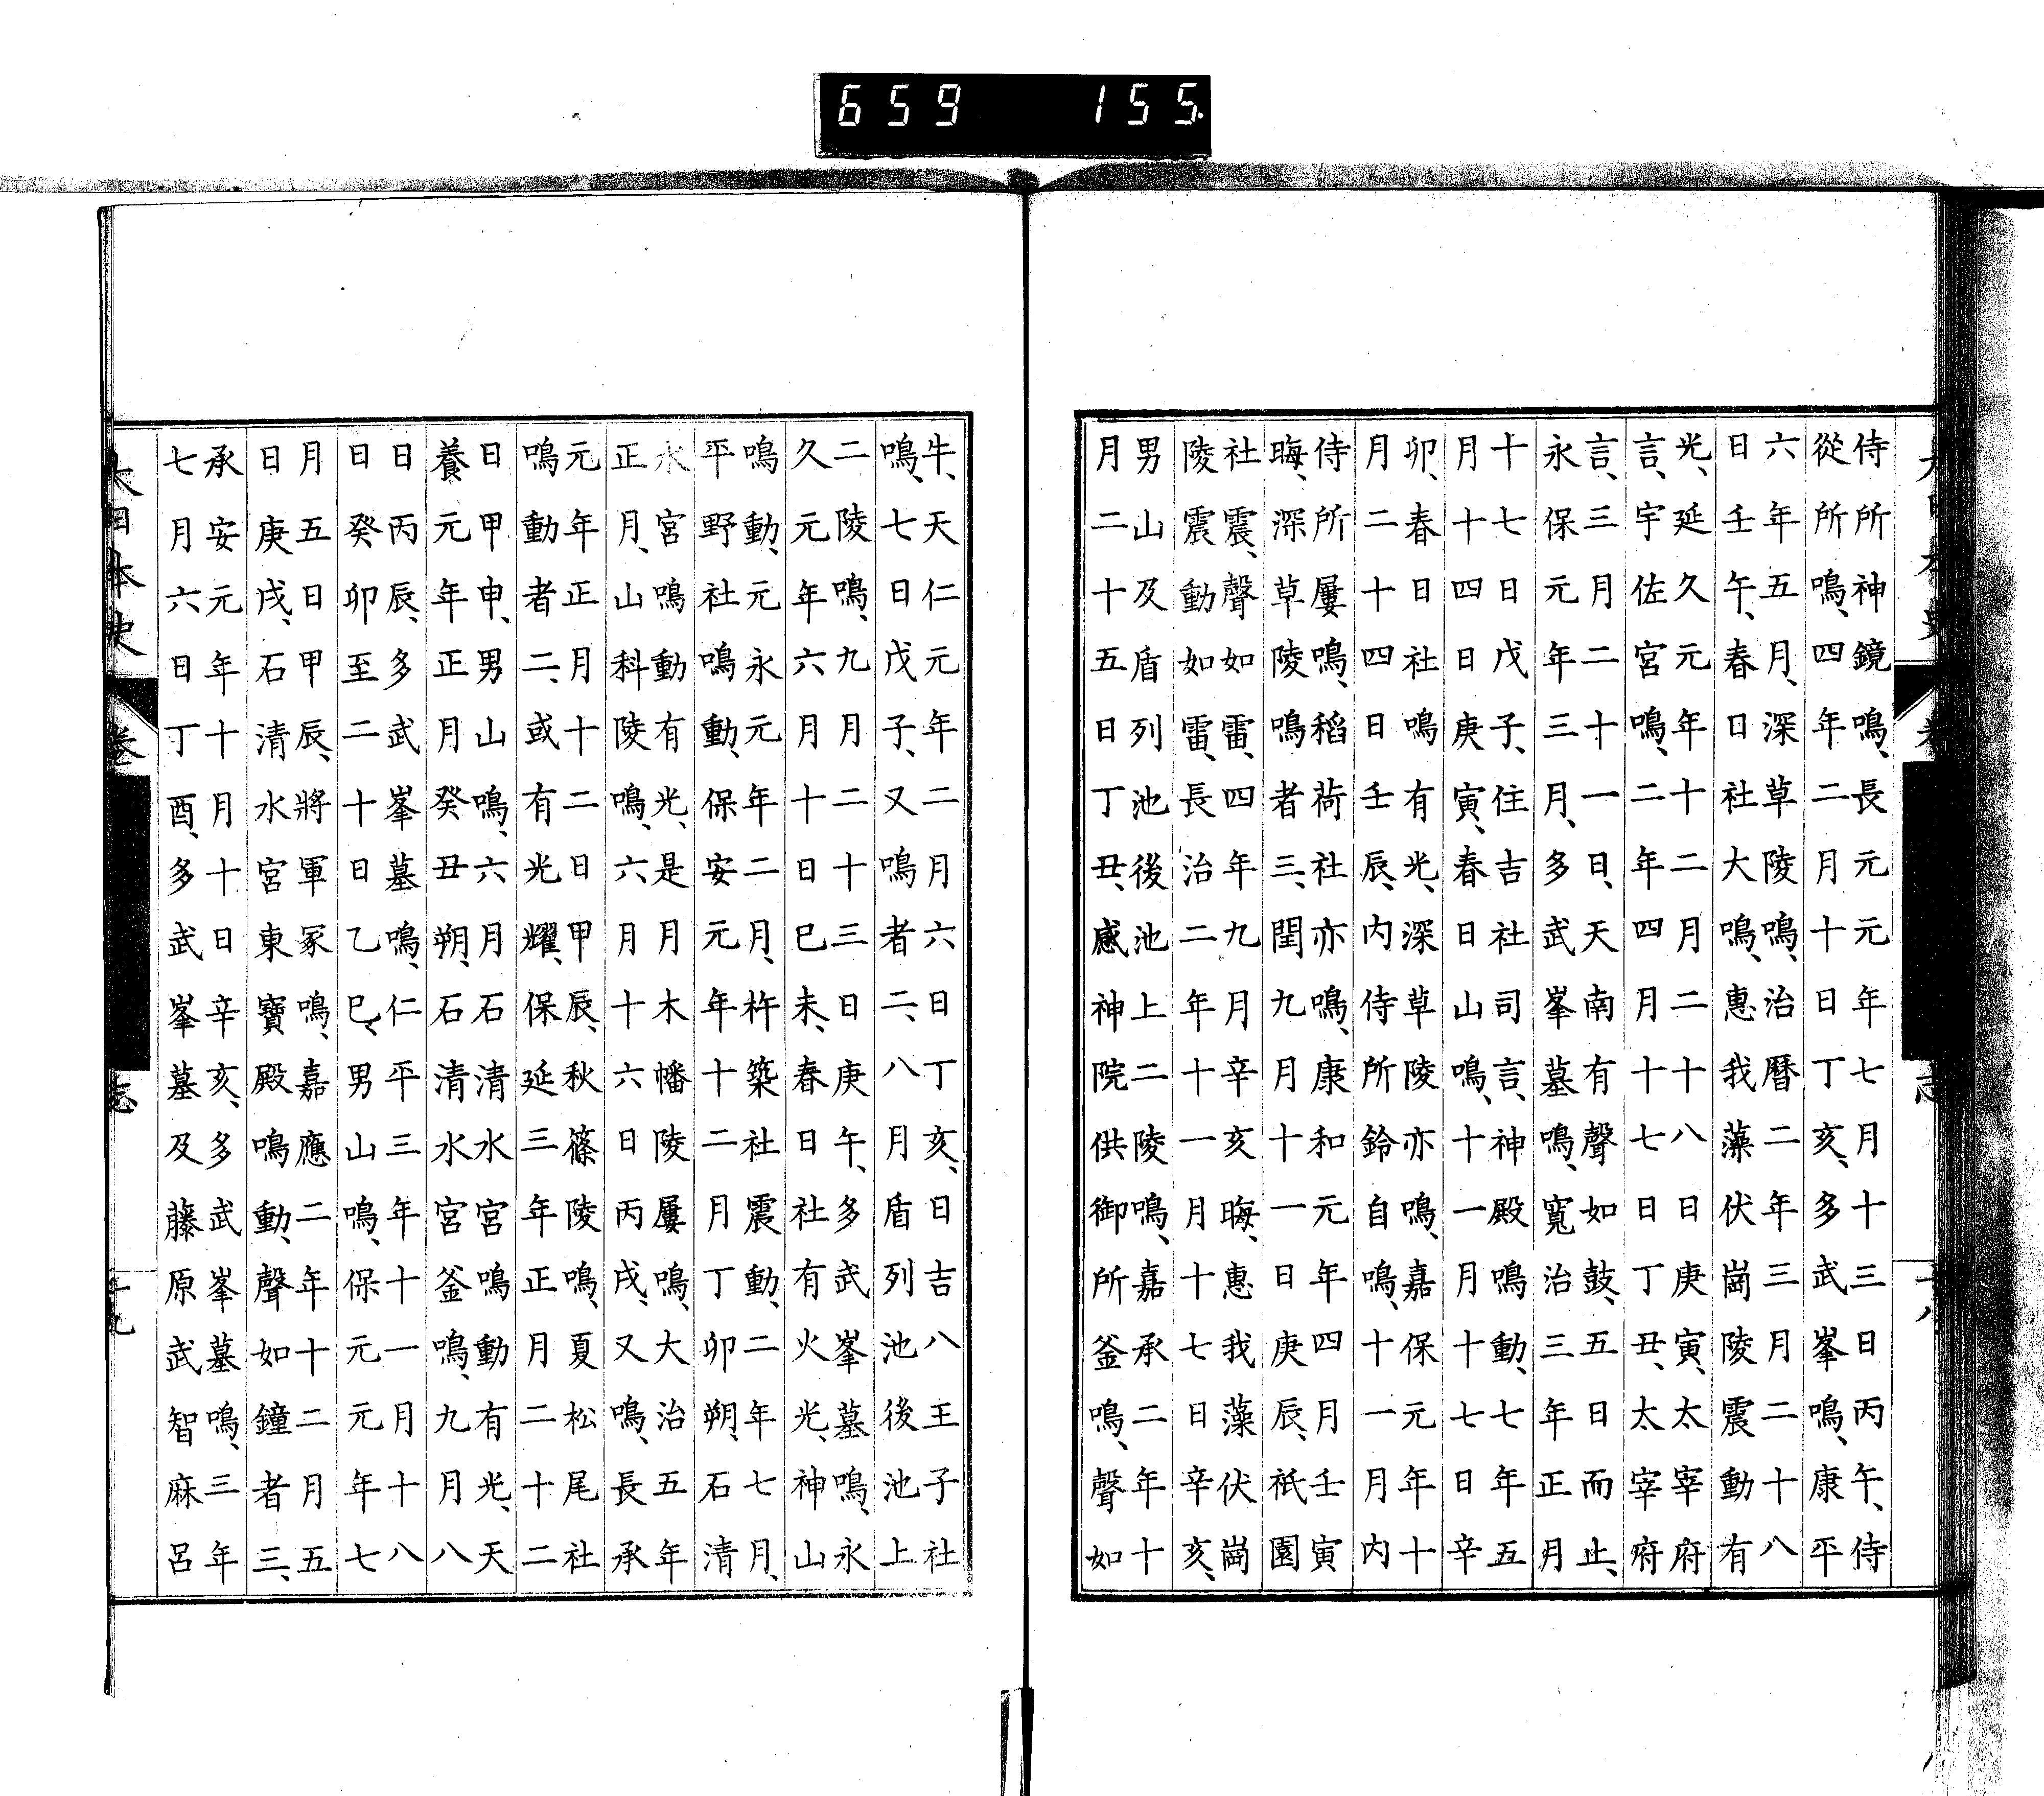 659 155
侍所神鏡鳴、長元元年七月十三日丙午、侍
從所鳴、四年二月十日丁亥、多武峯鳴、康平
六年五月、深草陵鳴、治曆二年三月二十八
日壬午、春日社大鳴、惠我藻伏崗陵震動有
光、延久元年十二月二十八日庚寅、太宰府
言、宇佐宮鳴、二年四月十七日丁丑、太宰府
言、三月二十一日、天南有聲如鼓、五日而止、
永保元年三月、多武峯墓鳴、寬治三年正月
十七日戊子、住吉社司言、神殿鳴動、七年五
月十四日庚寅、春日山鳴、十一月十七日辛
卯、春日社鳴有光、深草陵亦鳴、嘉保元年十
月二十四日壬辰、內侍所鈴自鳴、十一月內
侍所屢鳴、稻荷社亦鳴、康和元年四月壬寅
晦、深草陵鳴者三、閏九月十一日庚辰、祇園
社震、聲如雷、四年九月辛亥晦、惠我藻伏崗
陵震動如雷、長治二年十一月十七日辛亥、
男山及盾列池後池上二陵鳴、嘉承二年十
月二十五日丁丑、感神院供御所釜鳴、聲如
牛、天仁元年二月六日丁亥、日吉八王子社
鳴、七日戊子、又鳴者二、八月盾列池後池上
二陵鳴、九月二十三日庚午、多武峯墓鳴、永
久元年六月十日巳未、春日社有火光、神山
鳴動、元永元年二月、杵築社震動、二年七月、
平野社鳴動、保安元年十二月丁卯朔、石清
水宮鳴動有光、是月木幡陵屢鳴、大治五年
正月、山科陵鳴、六月十六日丙戌、又鳴、長承
元年正月十二日甲辰、秋篠陵鳴、夏松尾社
鳴動者二、或有光耀、保延三年正月二十二
日甲申、男山鳴、六月石清水宮鳴動有光、天
養元年正月癸丑朔、石清水宮釜鳴、九月八
日丙辰、多武峯墓鳴、仁平三年十一月十八
日癸卯至二十日乙巳、男山鳴、保元元年七
月五日甲辰、將軍冢鳴、嘉應二年十二月五
日庚戌、石清水宮東寶殿鳴動、聲如鐘者三、
承安元年十月十日辛亥、多武峯墓鳴、三年
七月六日丁酉、多武峯墓及藤原武智麻呂
大日本史 卷 志